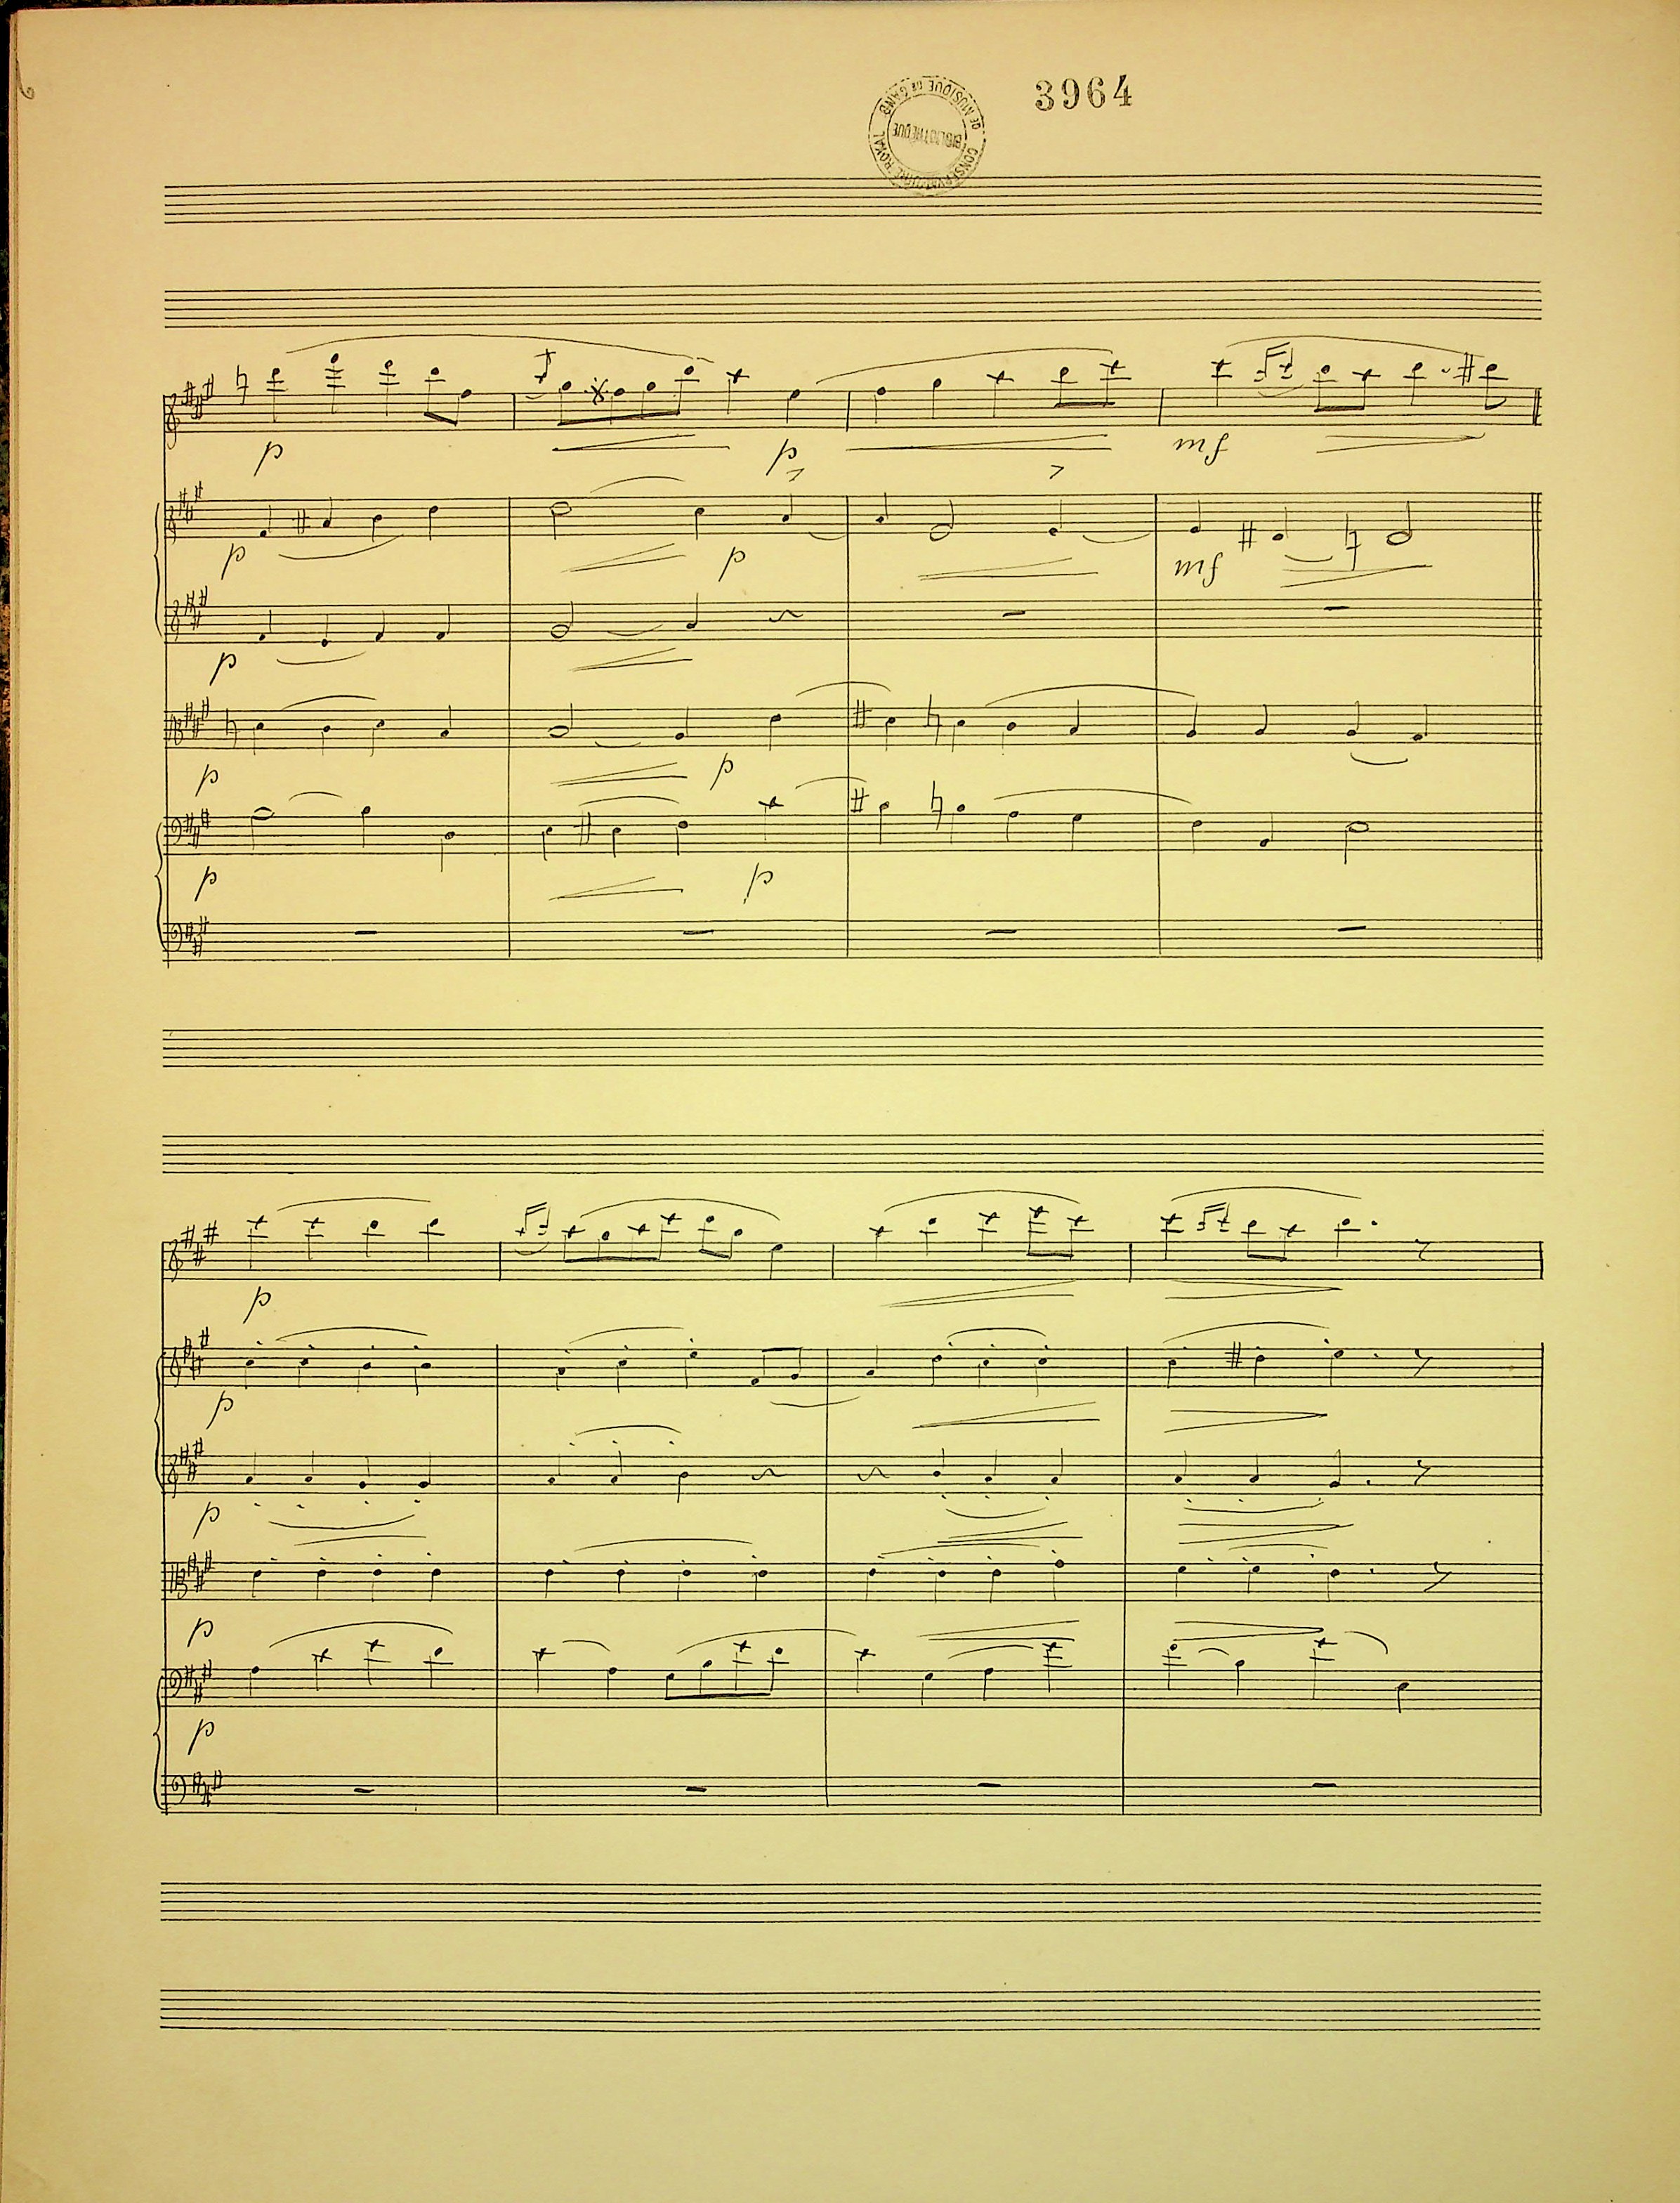 6
3964
CONSERVATOIRE ROYAL DE MUSIQUE DE GAND
BIBLIOTHÈQUE
p p mf
p p mf
p
p p
p p
p
p
p
p
p